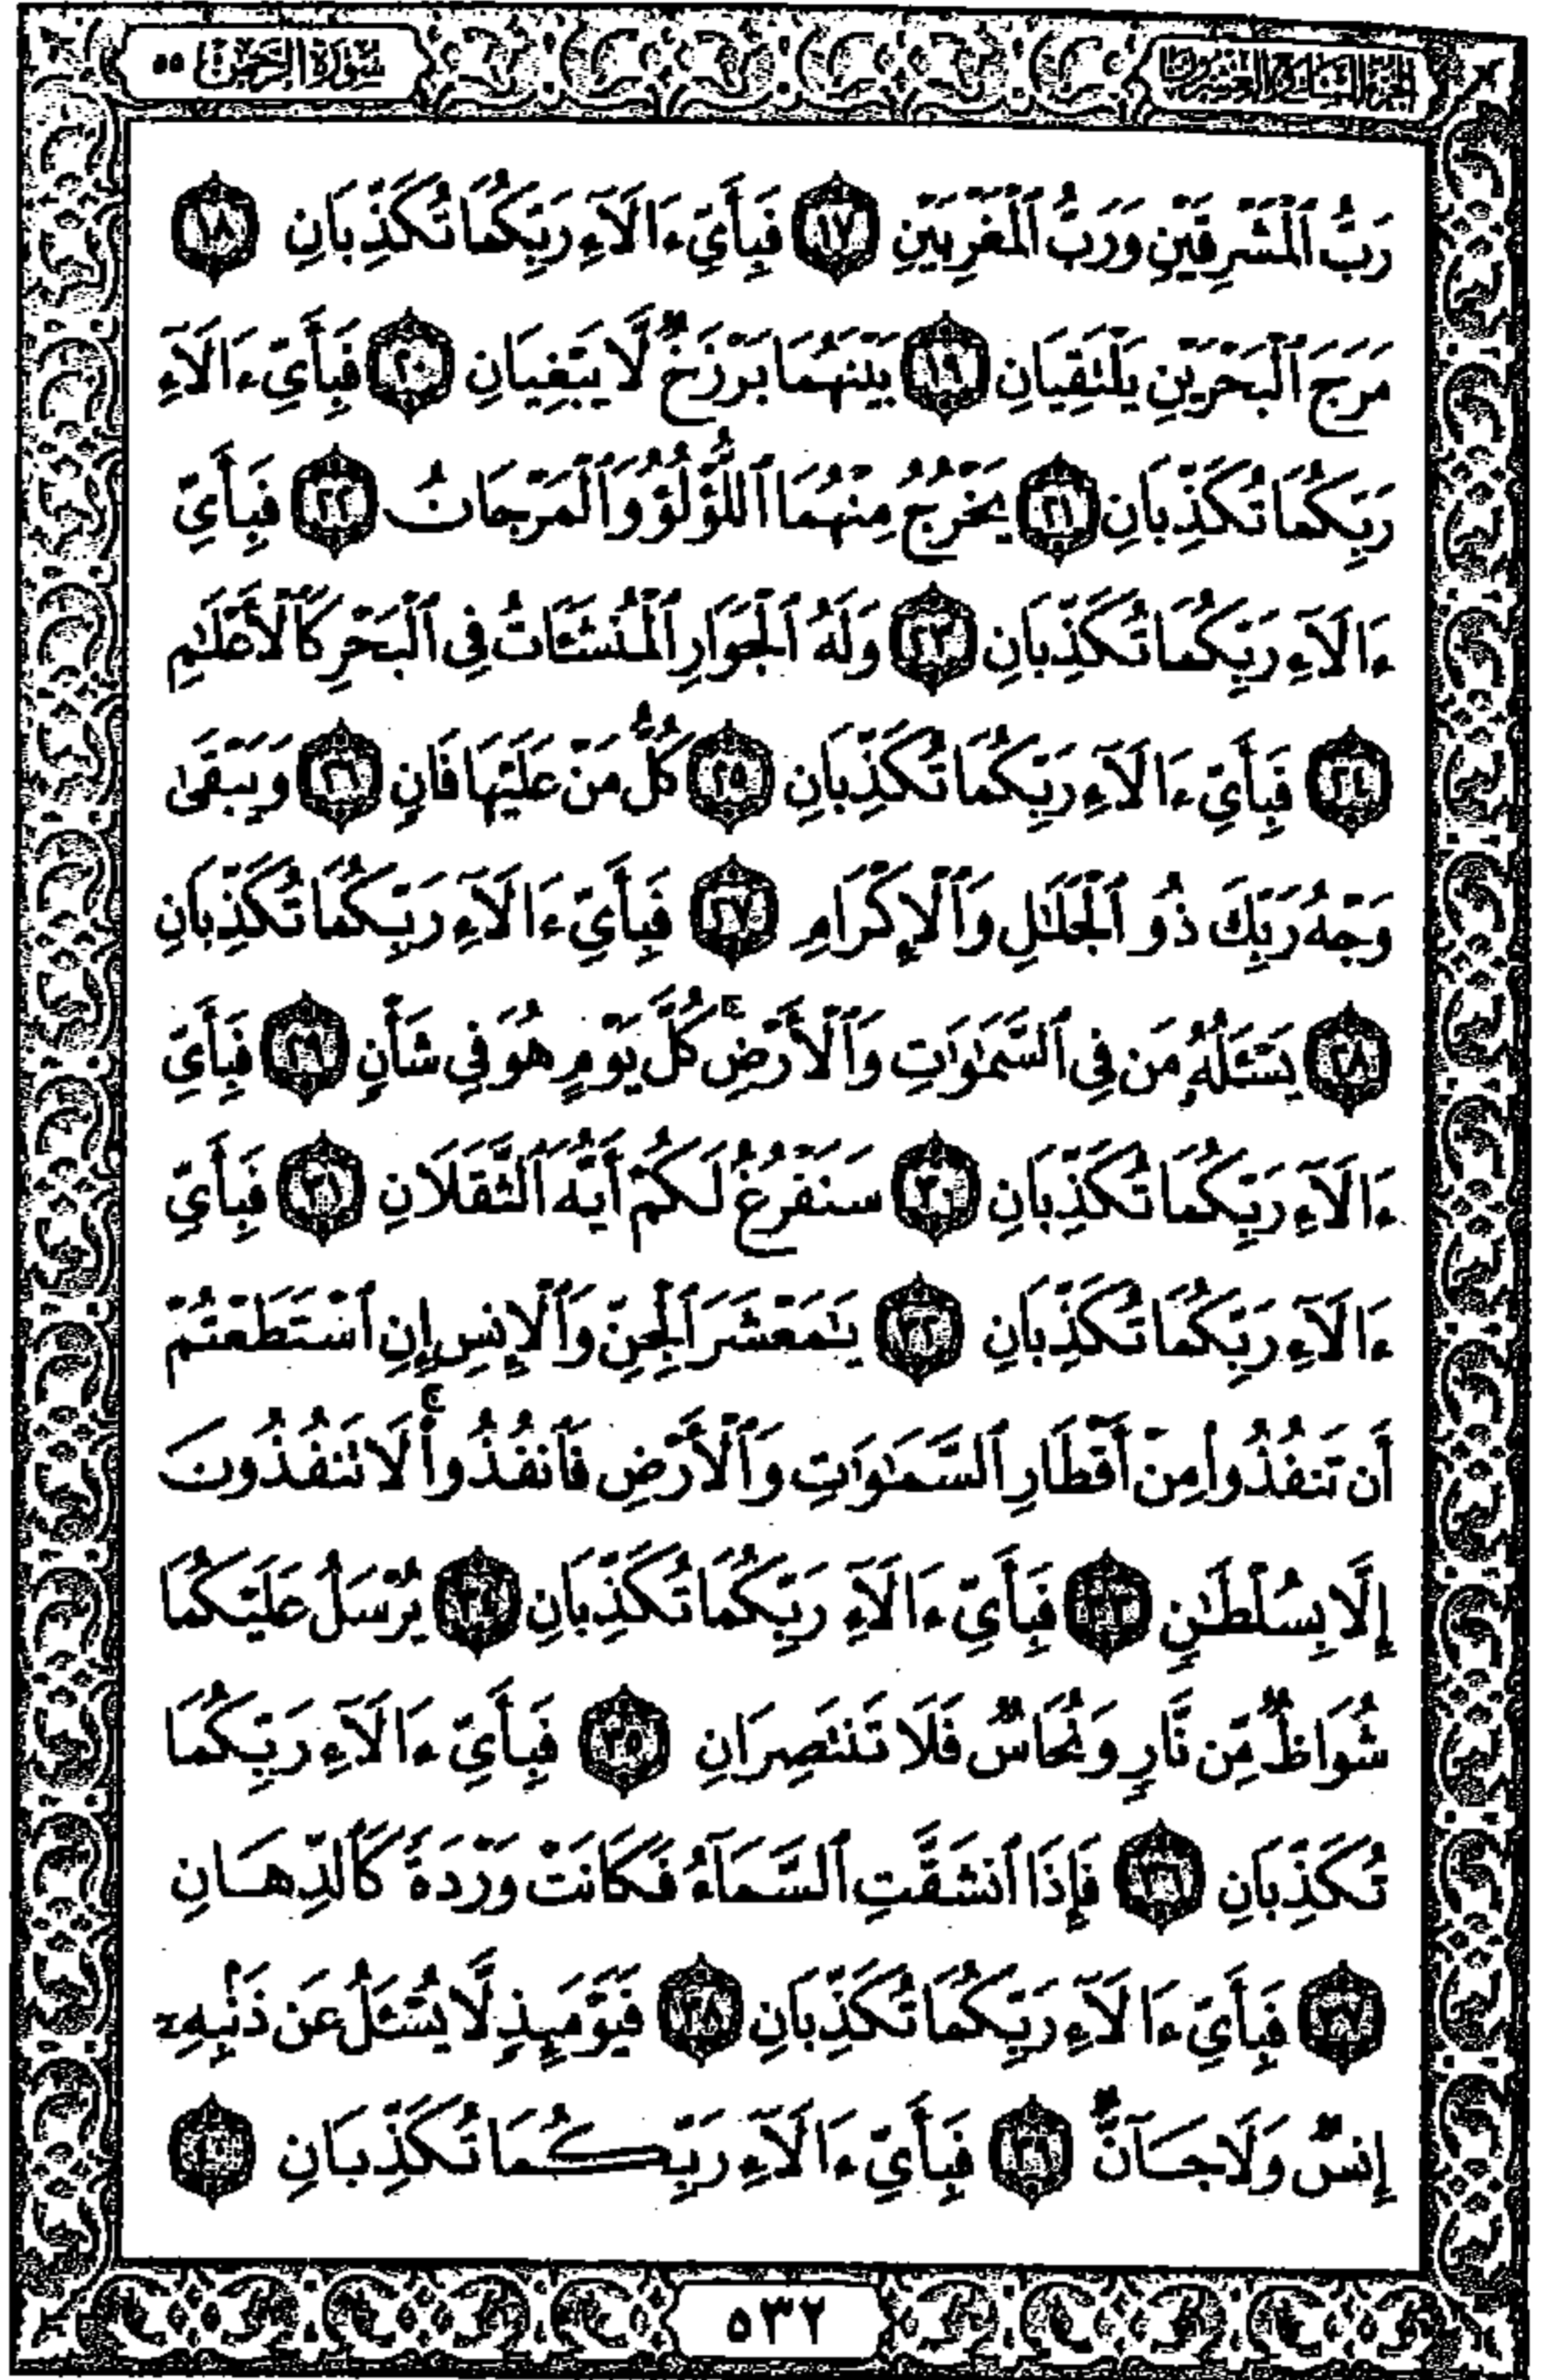 الجزء السابع والعشرون
سورة الرحمن ٥٥
رَبُّ ٱلْمَشْرِقَيْنِ وَرَبُّ ٱلْمَغْرِبَيْنِ ١٧ فَبِأَيِّ ءَالَآءِ رَبِّكُمَا تُكَذِّبَانِ ١٨
مَرَجَ ٱلْبَحْرَيْنِ يَلْتَقِيَانِ ١٩ بَيْنَهُمَا بَرْزَخٌ لَّا يَبْغِيَانِ ٢٠ فَبِأَيِّ ءَالَآءِ
رَبِّكُمَا تُكَذِّبَانِ ٢١ يَخْرُجُ مِنْهُمَا ٱللُّؤْلُؤُ وَٱلْمَرْجَانُ ٢٢ فَبِأَيِّ
ءَالَآءِ رَبِّكُمَا تُكَذِّبَانِ ٢٣ وَلَهُ ٱلْجَوَارِ ٱلْمُنشَـَٔاتُ فِى ٱلْبَحْرِ كَٱلْأَعْلَـٰمِ
٢٤ فَبِأَيِّ ءَالَآءِ رَبِّكُمَا تُكَذِّبَانِ ٢٥ كُلُّ مَنْ عَلَيْهَا فَانٍ ٢٦ وَيَبْقَىٰ
وَجْهُ رَبِّكَ ذُو ٱلْجَلَـٰلِ وَٱلْإِكْرَامِ ٢٧ فَبِأَيِّ ءَالَآءِ رَبِّكُمَا تُكَذِّبَانِ
٢٨ يَسْـَٔلُهُۥ مَن فِى ٱلسَّمَـٰوَٰتِ وَٱلْأَرْضِ ۚ كُلَّ يَوْمٍ هُوَ فِى شَأْنٍ ٢٩ فَبِأَيِّ
ءَالَآءِ رَبِّكُمَا تُكَذِّبَانِ ٣٠ سَنَفْرُغُ لَكُمْ أَيُّهَ ٱلثَّقَلَانِ ٣١ فَبِأَيِّ
ءَالَآءِ رَبِّكُمَا تُكَذِّبَانِ ٣٢ يَـٰمَعْشَرَ ٱلْجِنِّ وَٱلْإِنسِ إِنِ ٱسْتَطَعْتُمْ
أَن تَنفُذُوا۟ مِنْ أَقْطَارِ ٱلسَّمَـٰوَٰتِ وَٱلْأَرْضِ فَٱنفُذُوا۟ ۚ لَا تَنفُذُونَ
إِلَّا بِسُلْطَـٰنٍ ٣٣ فَبِأَيِّ ءَالَآءِ رَبِّكُمَا تُكَذِّبَانِ ٣٤ يُرْسَلُ عَلَيْكُمَا
شُوَاظٌ مِّن نَّارٍ وَنُحَاسٌ فَلَا تَنتَصِرَانِ ٣٥ فَبِأَيِّ ءَالَآءِ رَبِّكُمَا
تُكَذِّبَانِ ٣٦ فَإِذَا ٱنشَقَّتِ ٱلسَّمَآءُ فَكَانَتْ وَرْدَةً كَٱلدِّهَانِ
٣٧ فَبِأَيِّ ءَالَآءِ رَبِّكُمَا تُكَذِّبَانِ ٣٨ فَيَوْمَئِذٍ لَّا يُسْـَٔلُ عَن ذَنۢبِهِۦٓ
إِنسٌ وَلَا جَآنٌّ ٣٩ فَبِأَيِّ ءَالَآءِ رَبِّكُمَا تُكَذِّبَانِ ٤٠
٥٣٢